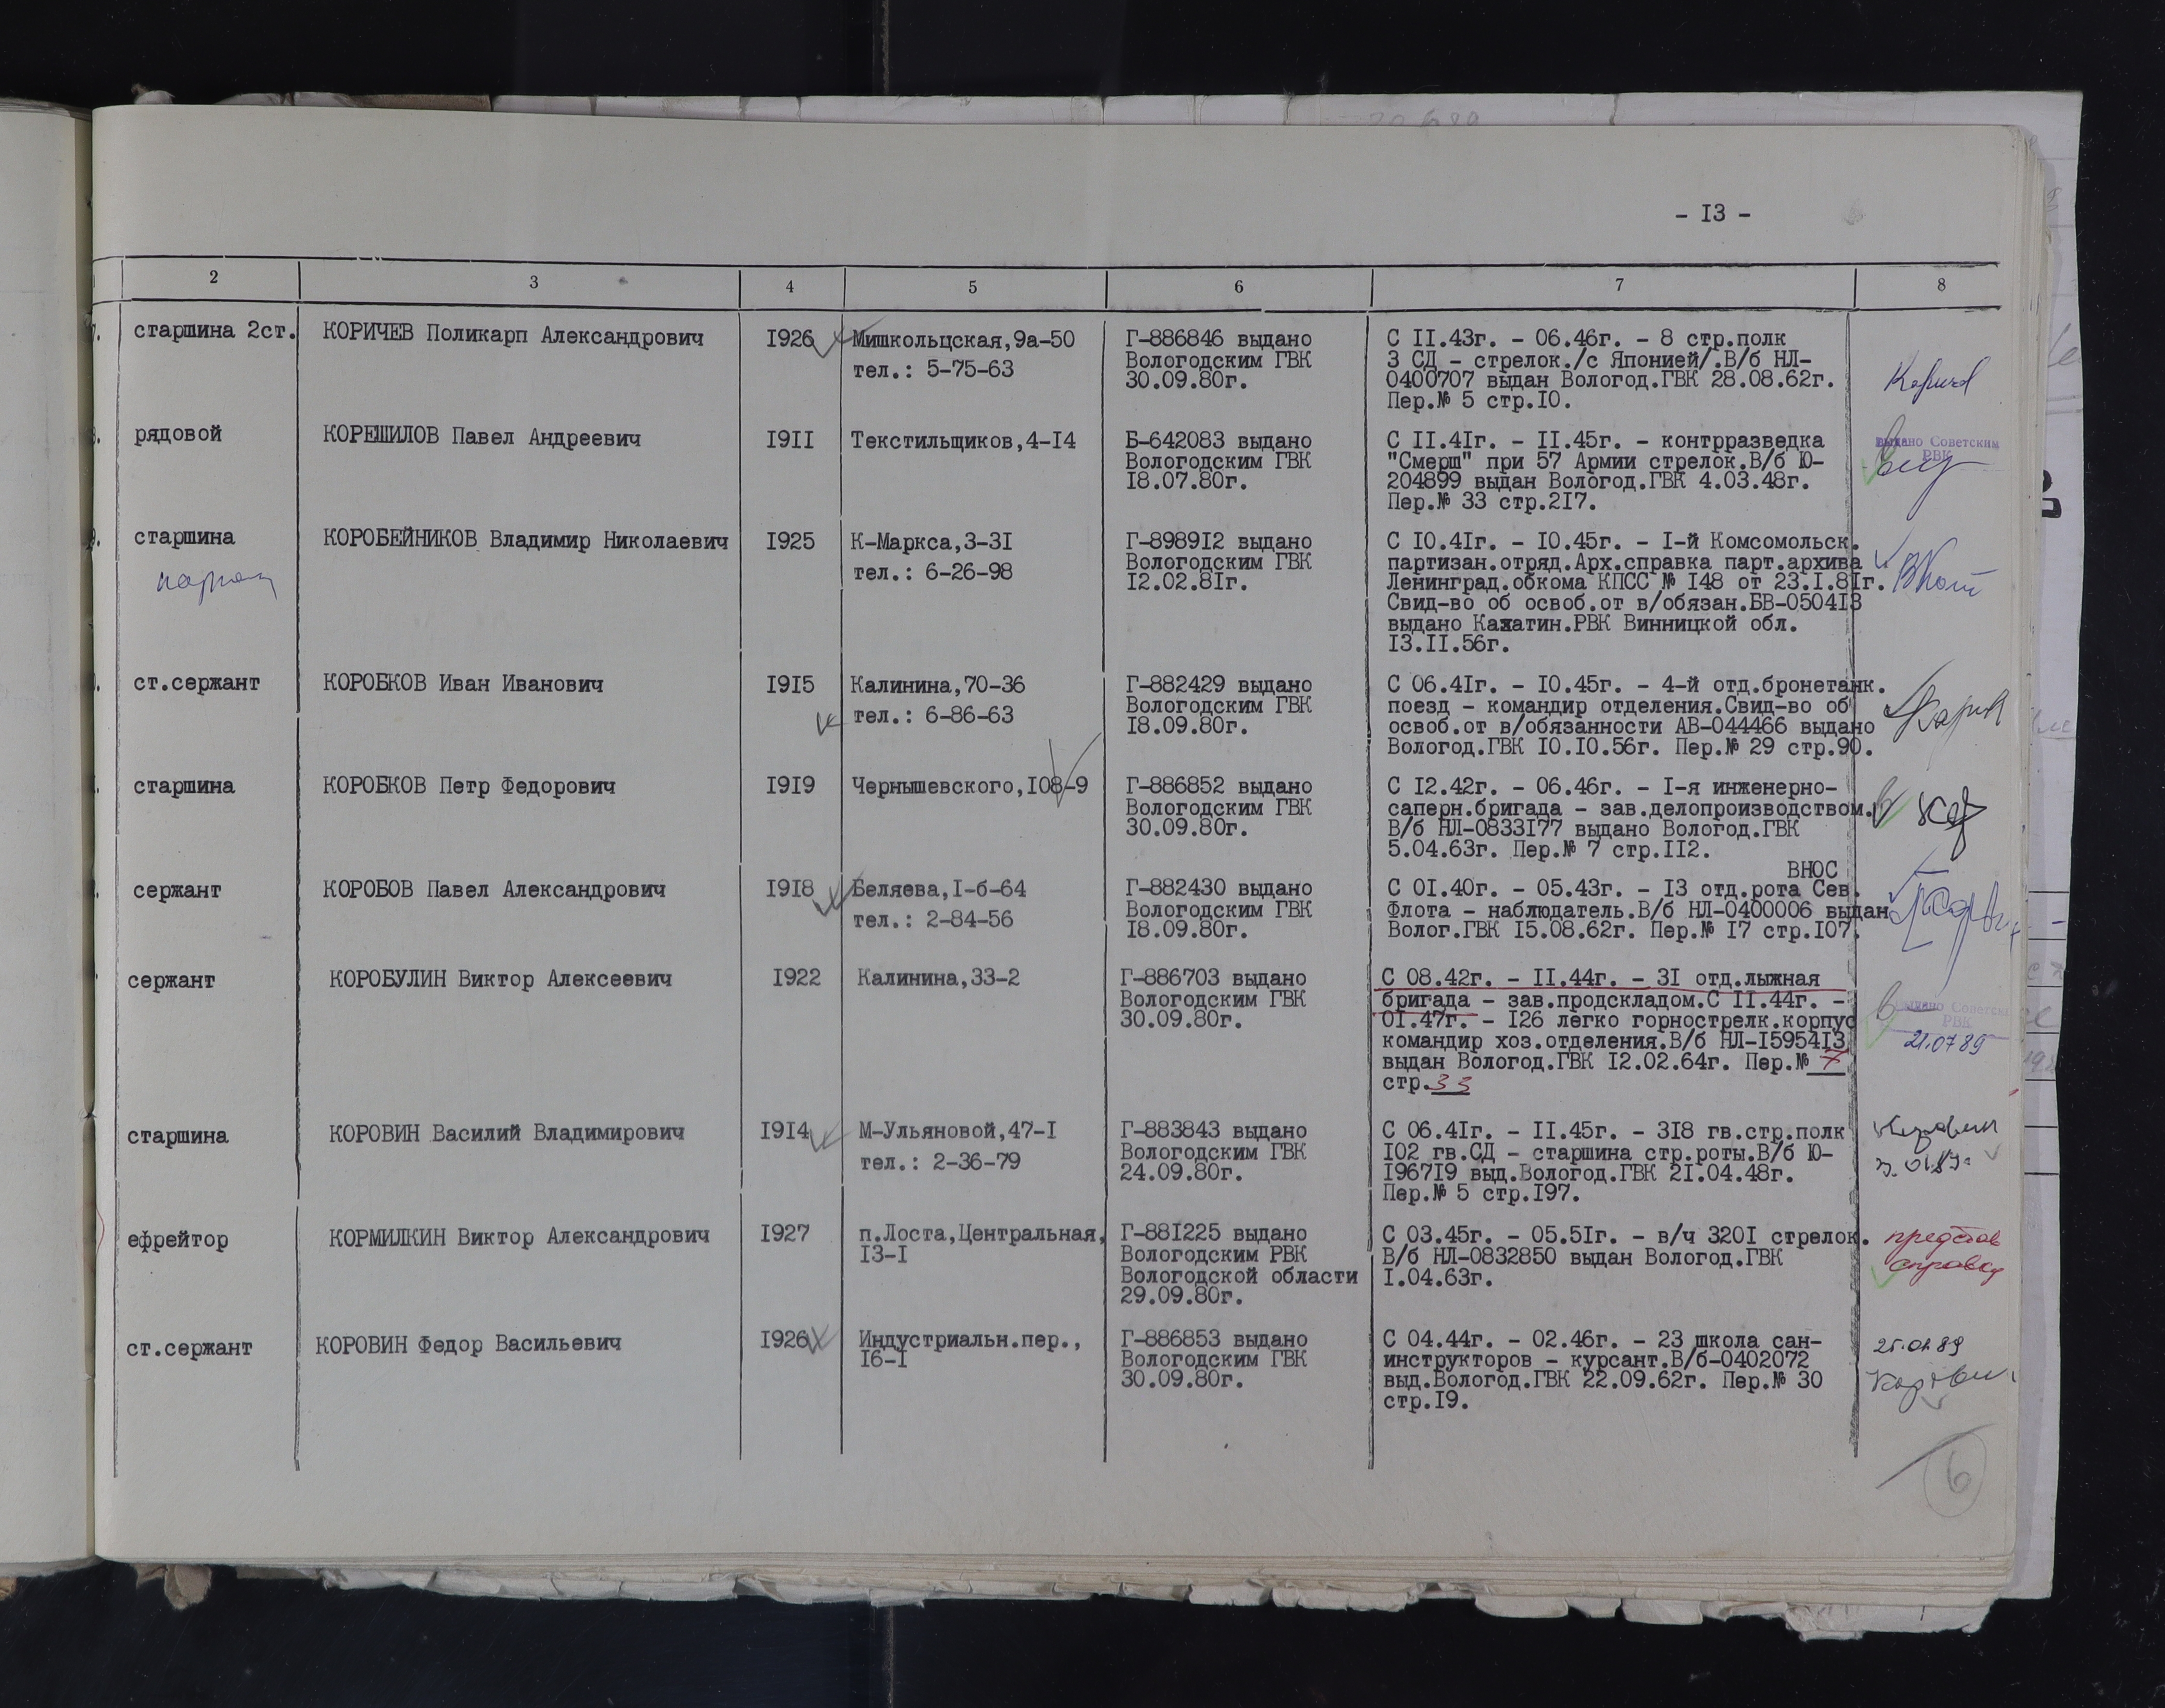 - I3 -
2 3 4 5 6 7 8
старшина 2ст. КОРИЧЕВ Поликарп Александрович I926 Мишкольцская,9а-50 Г-886846 выдано С II.43г. - 06.46г. - 8 стр.полк
Вологодским ГВК 3 СД - стрелок./с Японией/.В/б НЛ-
тел.: 5-75-63 30.09.80г. 0400707 выдан Вологод.ГВК 28.08.62г.
Пер.№ 5 стр.I0.
рядовой КОРЕШИЛОВ Павел Андреевич I9II Текстильщиков,4-I4 Б-642083 выдано С II.4Iг. - II.45г. - контрразведка выдано Советским
Вологодским ГВК "Смерш" при 57 Армии стрелок.В/б Ю- РВК
I8.07.80г. 204899 выдан Вологод.ГВК 4.03.48г.
Пер.№ 33 стр.2I7.
старшина КОРОБЕЙНИКОВ Владимир Николаевич I925 К-Маркса,3-3I Г-8989I2 выдано С I0.4Iг. - I0.45г. - I-й Комсомольск.
Вологодским ГВК партизан.отряд.Арх.справка парт.архива
тел.: 6-26-98 I2.02.8Iг. Ленинград.обкома КПСС № I48 от 23.I.8Iг.
Свид-во об освоб.от в/обязан.БВ-0504I3
выдано Казатин.РВК Винницкой обл.
I3.II.56г.
ст.сержант КОРОБКОВ Иван Иванович I9I5 Калинина,70-36 Г-882429 выдано С 06.4Iг. - I0.45г. - 4-й отд.бронетанк.
тел.: 6-86-63 Вологодским ГВК поезд - командир отделения.Свид-во об
I8.09.80г. освоб.от в/обязанности АВ-044466 выдано
Вологод.ГВК I0.I0.56г. Пер.№ 29 стр.90.
старшина КОРОБКОВ Петр Федорович I9I9 Чернышевского,I08-9 Г-886852 выдано С I2.42г. - 06.46г. - I-я инженерно-
Вологодским ГВК саперн.бригада - зав.делопроизводством.
30.09.80г. В/б НЛ-0833I77 выдано Вологод.ГВК
5.04.63г. Пер.№ 7 стр.II2.
ВНОС
сержант КОРОБОВ Павел Александрович I9I8 Беляева,I-б-64 Г-882430 выдано С 0I.40г. - 05.43г. - I3 отд.рота Сев.
Вологодским ГВК Флота - наблюдатель.В/б НЛ-0400006 выдан
тел.: 2-84-56 I8.09.80г. Волог.ГВК I5.08.62г. Пер.№ I7 стр.I07.
сержант КОРОБУЛИН Виктор Алексеевич I922 Калинина,33-2 Г-886703 выдано С 08.42г. - II.44г. - 3I отд.лыжная
Вологодским ГВК бригада - зав.продскладом.С II.44г. - выдано Советским
30.09.80г. 0I.47г. - I26 легко горнострелк.корпус РВК
командир хоз.отделения.В/б НЛ-I5954I3 21.07 89
выдан Вологод.ГВК I2.02.64г. Пер.№ 7
стр.33
старшина КОРОВИН Василий Владимирович I9I4 М-Ульяновой,47-I Г-883843 выдано С 06.4Iг. - II.45г. - 3I8 гв.стр.полк
Вологодским ГВК I02 гв.СД - старшина стр.роты.В/б Ю-
тел.: 2-36-79 24.09.80г. I967I9 выд.Вологод.ГВК 2I.04.48г.
Пер.№ 5 стр.I97.
ефрейтор КОРМИЛКИН Виктор Александрович I927 п.Лоста,Центральная, Г-88I225 выдано С 03.45г. - 05.5Iг. - в/ч 320I стрелок. представ
I3-I Вологодским РВК В/б НЛ-0832850 выдан Вологод.ГВК справку
Вологодской области I.04.63г.
29.09.80г.
ст.сержант КОРОВИН Федор Васильевич I926 Индустриальн.пер., Г-886853 выдано С 04.44г. - 02.46г. - 23 школа сан-
I6-I Вологодским ГВК инструкторов - курсант.В/б-0402072
30.09.80г. выд.Вологод.ГВК 22.09.62г. Пер.№ 30
стр.I9.
6